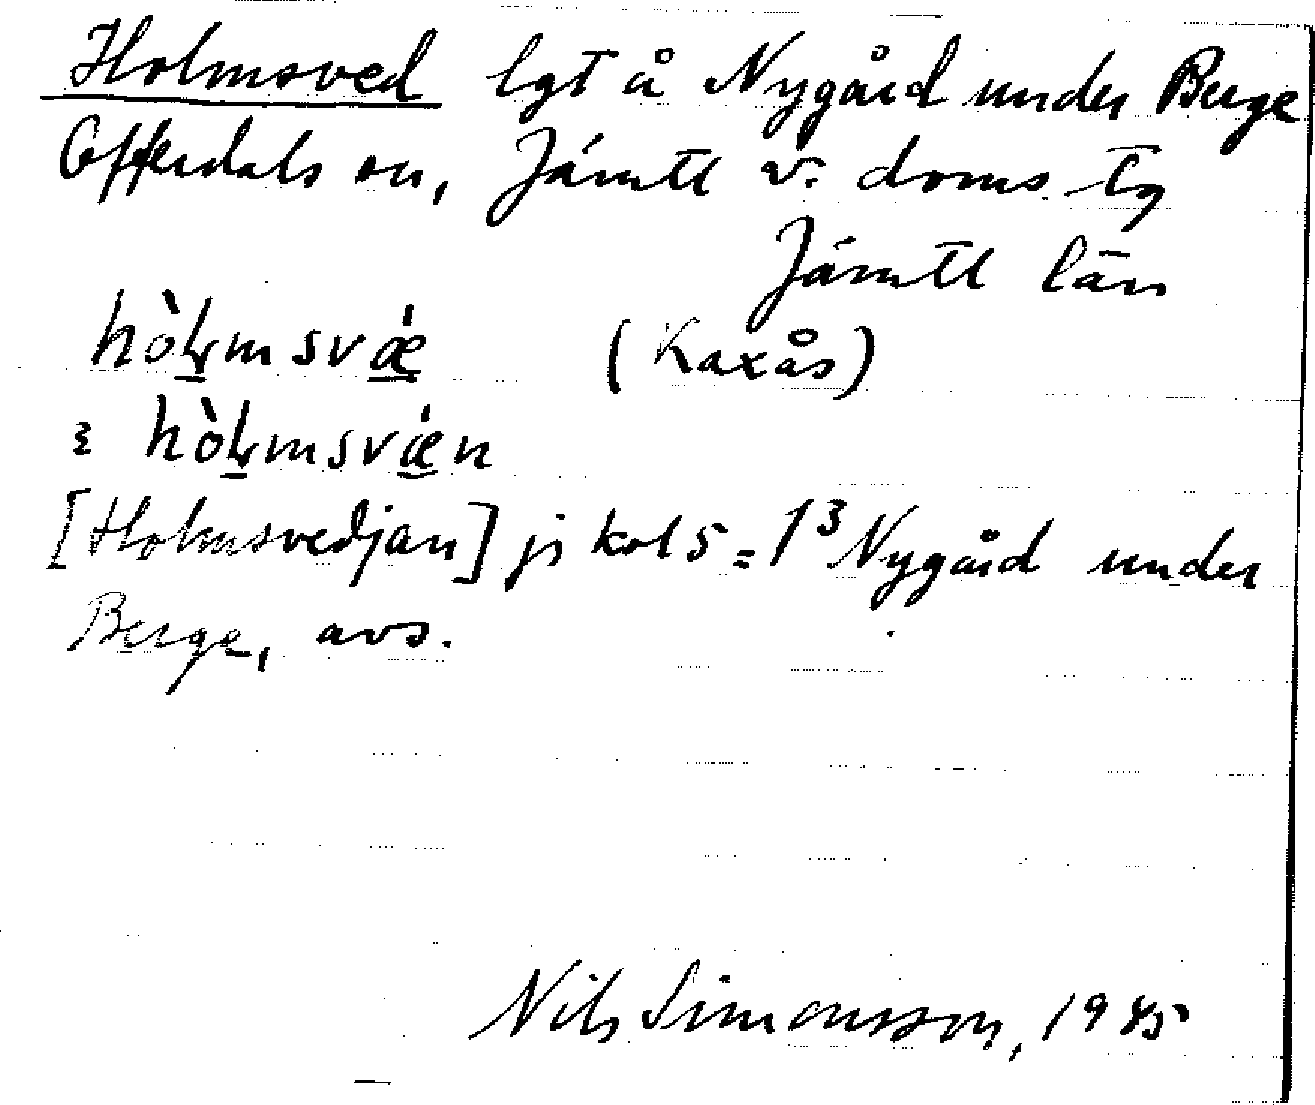 Holmsved lgt å Nygård under Berge
Offerdals sn, Jämtl v. doms. tg
Jämtl län
hòl̥msvǽ (Kaxås)
ꜫ hòl̥msvǽn
[Holmsvedjan] jr kol 5 = 1³ Nygård under
Berge, avs.
Nils Simonsson, 1945